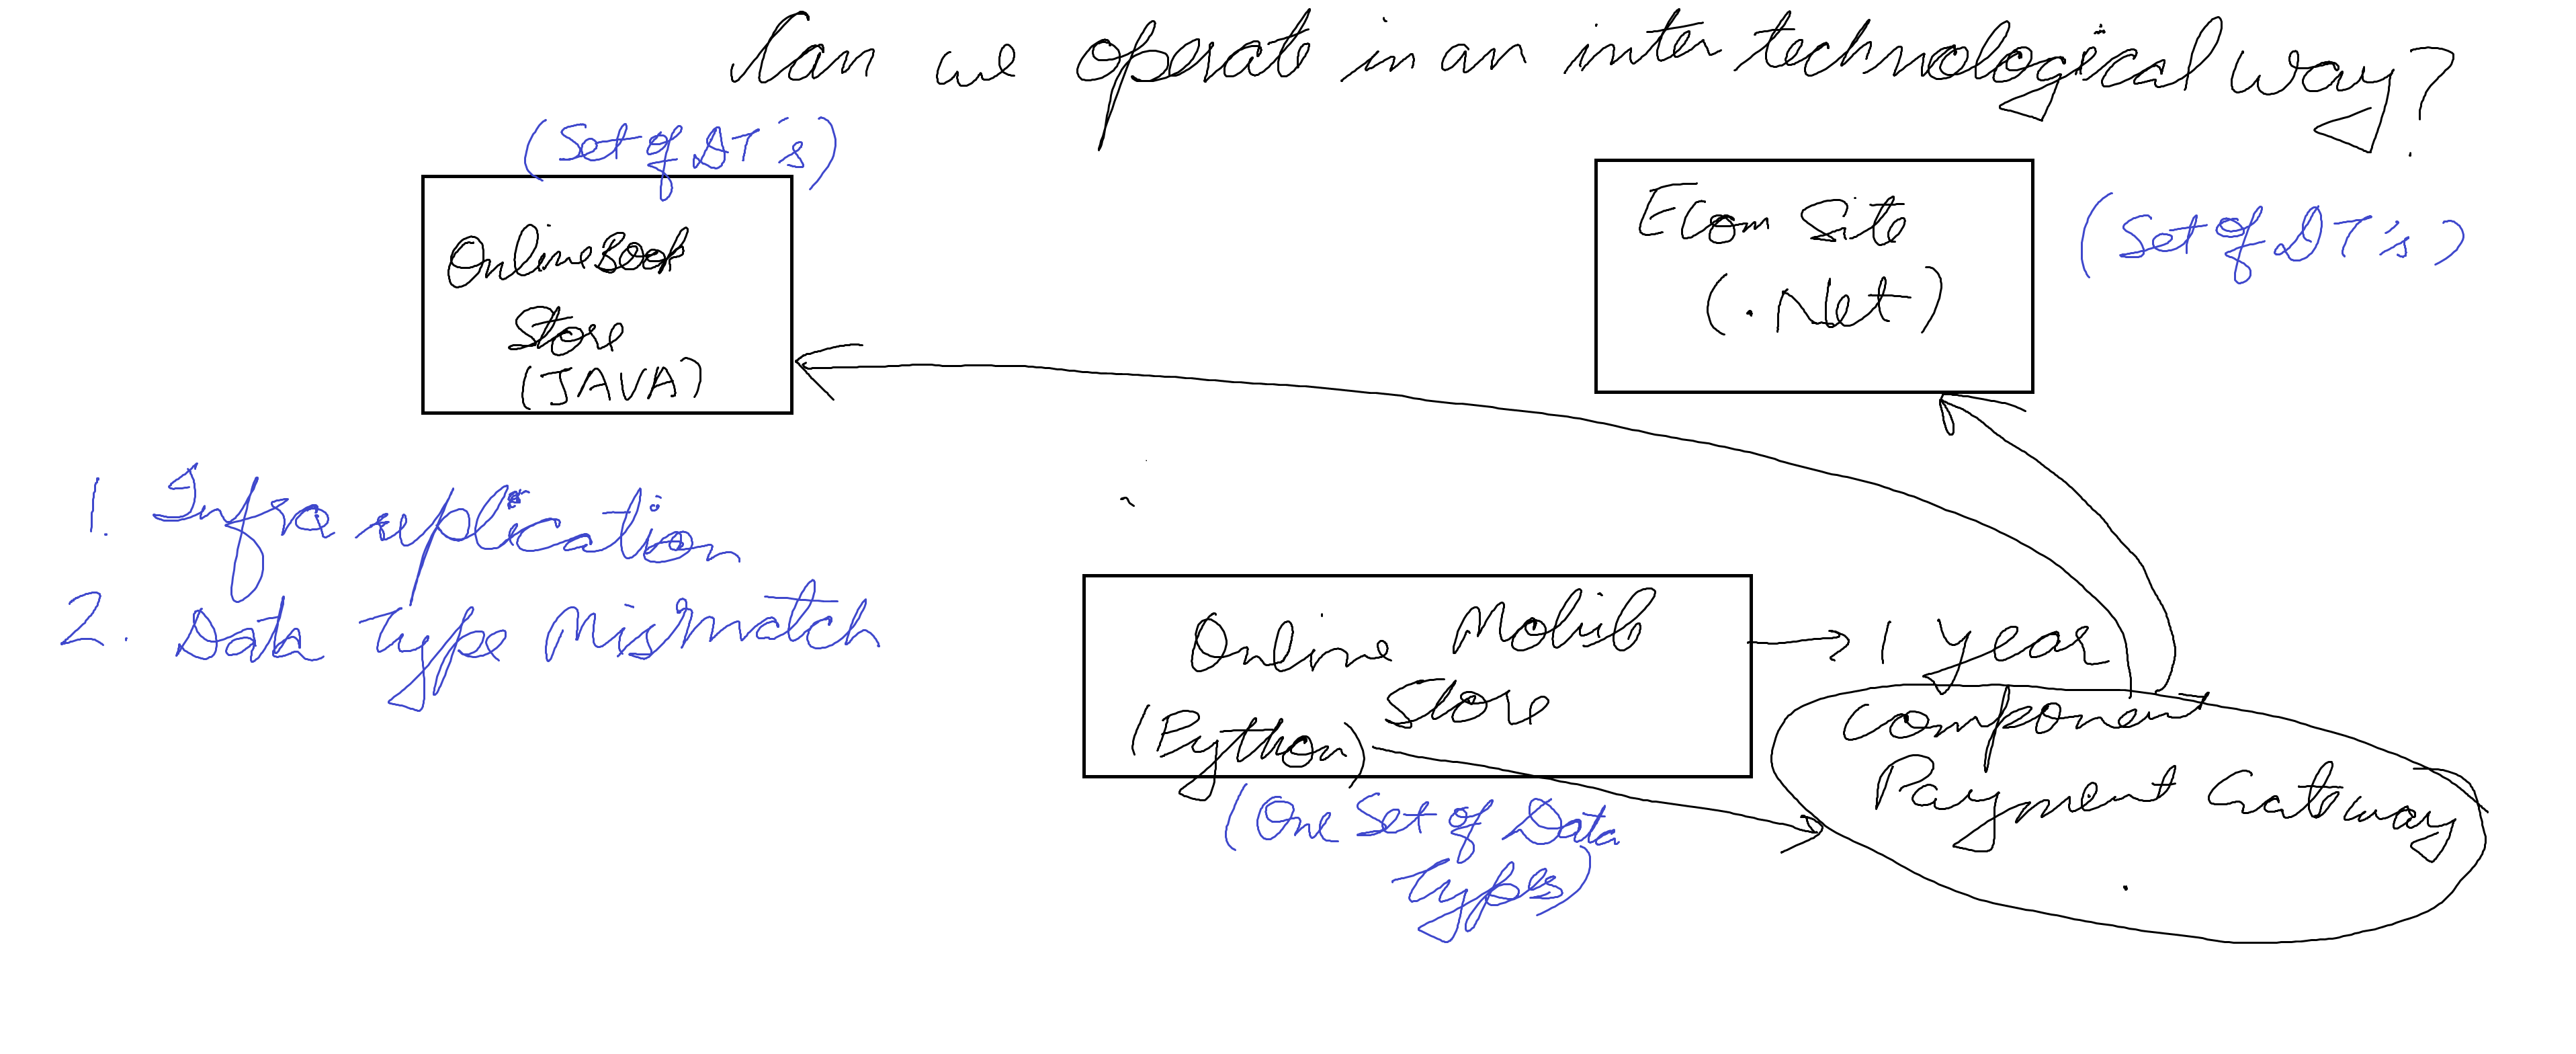 Can we operate in an inter technological way?
(Set of DT's)
OnlineBook
Store
(JAVA)
Ecom Site
(.Net)
(Set of DT's)
1. Infra replication
2. Data type Mismatch
Online Mobile
Store
(Python)
(One Set of Data
types)
1 year
Component
Payment Gateway